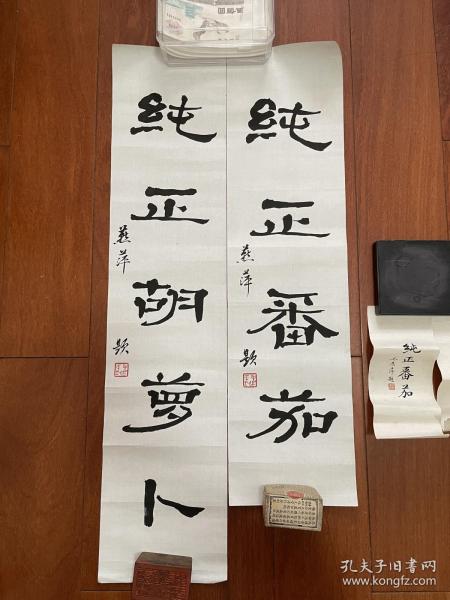 純正番茄
燕萍 题
純正胡萝卜
燕萍 题
純正番茄
孔夫子旧书网
www.kongfz.com